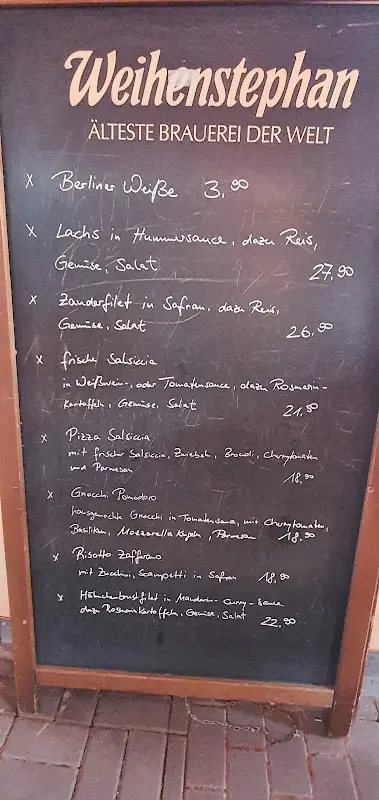 Weihenstephan
ÄLTESTE BRAUEREI DER WELT
x Berliner Weiße 3,90
x Lachs in Hummersauce, dazu Reis,
Gemüse, Salat 27,90
x Zanderfilet in Safran, dazu Reis,
Gemüse, Salat 26,90
x frische Salsiccia
in Weißwein-, oder Tomatensauce, dazu Rosmarin-
kartoffeln, Gemüse, Salat 21,90
x Pizza Salsiccia
mit frischer Salsiccia, Zwiebeln, Brocoli, Cherrytomaten
und Parmesan
18,90
x Gnocchi Pomodoro
hausgemachte Gnocchi in Tomatensauce, mit Cherrytomaten,
Basilikum, Mozzarella Kugeln, Parmesan 18,90
x Risotto Zafferano
mit Zucchini, Scampetti in Safran 18,90
x Hähnchenbrustfilet in Mandarin-Curry-Sauce
dazu Rosmarinkartoffeln, Gemüse, Salat 22,90